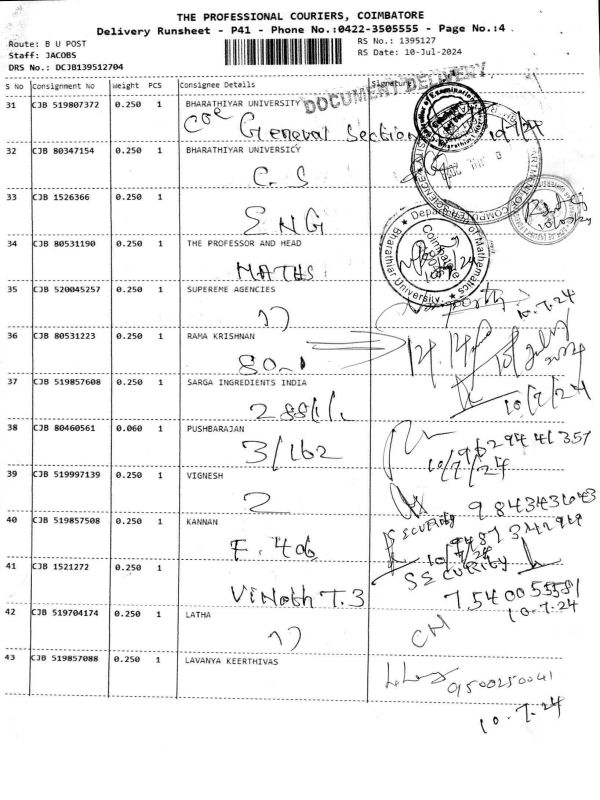 THE PROFESSIONAL COURIERS, COIMBATORE
Delivery Runsheet - P41 - Phone No.:0422-3505555 - Page No.:4
Route: B U POST
Staff: JACOBS
DRS No.: DCJB139512704
RS No.: 1395127
RS Date: 10-Jul-2024
S No Consignment No Weight PCS Consignee Details Signature
DOCUMENT DELIVERY
31 CJB 519807372 0.250 1 BHARATHIYAR UNIVERSITY
COE General Section 10/7/24
32 CJB 80347154 0.250 1 BHARATHIYAR UNIVERSICY
C.S
33 CJB 1526366 0.250 1
ENG
34 CJB 80531190 0.250 1 THE PROFESSOR AND HEAD
MATHS
Department of Mathematics
Coimbatore
Bharathiar University
35 CJB 520045257 0.250 1 SUPEREME AGENCIES
17 10.7.24
36 CJB 80531223 0.250 1 RAMA KRISHNAN
37 CJB 519857608 0.250 1 SARGA INGREDIENTS INDIA
10/7/24
38 CJB 80460561 0.060 1 PUSHBARAJAN
3/162
10/7/24
39 CJB 519997139 0.250 1 VIGNESH
2
40 CJB 519857508 0.250 1 KANNAN
F.406
SECURITY
41 CJB 1521272 0.250 1
Vinoth T.3 SECURITY
10.7.24
42 CJB 519704174 0.250 1 LATHA
17
43 CJB 519857088 0.250 1 LAVANYA KEERTHIVAS
9500250041
10.7.24